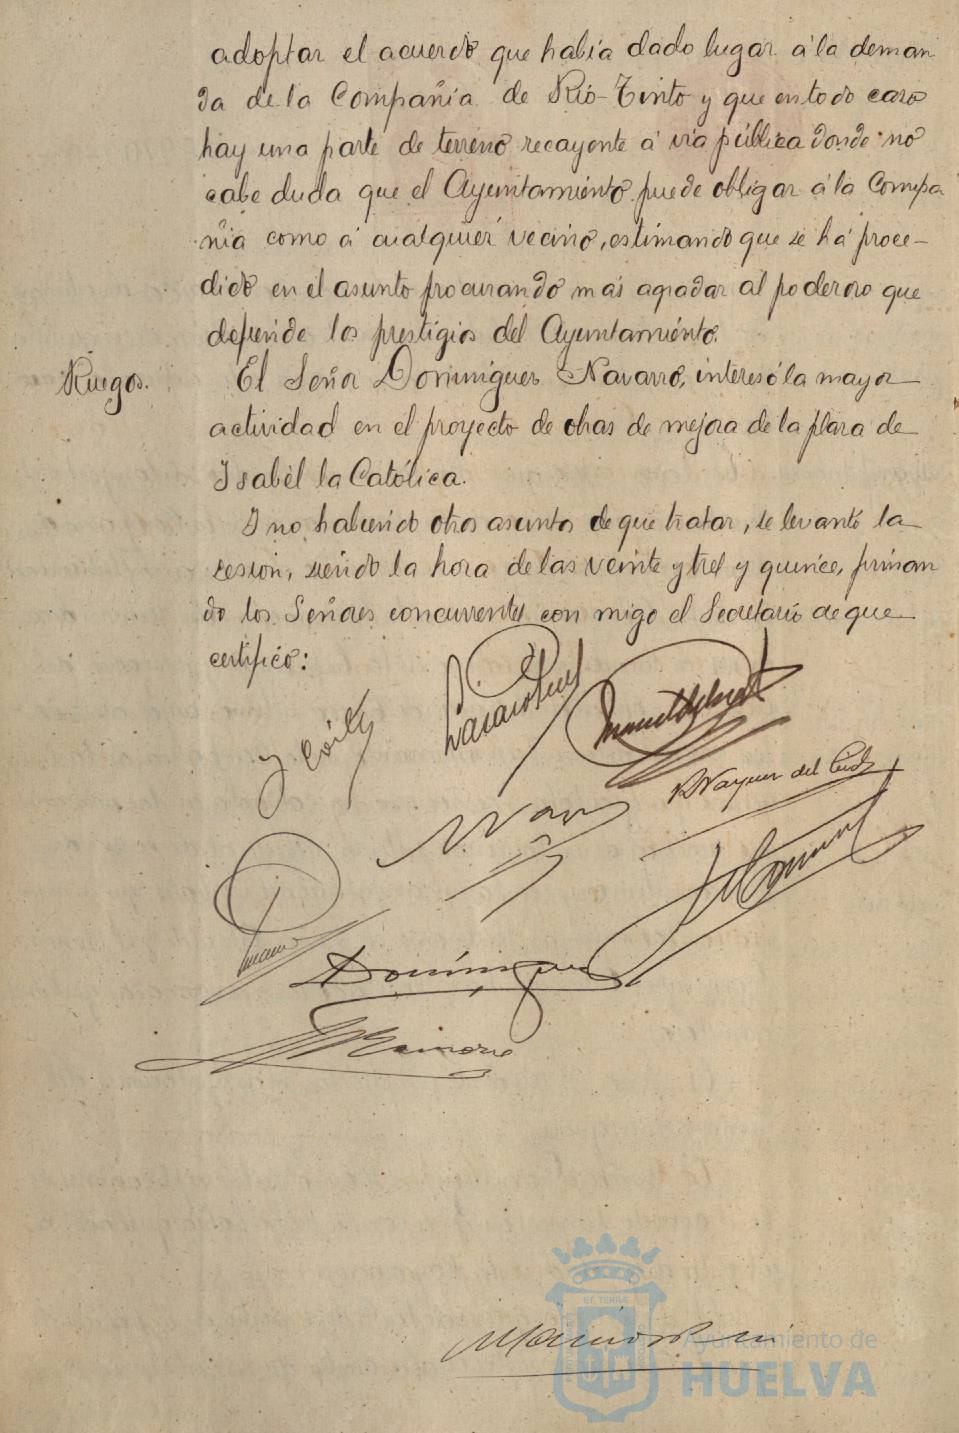 adoptar el acuerdo que había dado lugar á la deman
da de la Compañia de Rio-Tinto y que en todo caso
hay una parte de terreno recayente á via pública donde no
cabe duda que el Ayuntamiento puede obligar á la Compa
ñia como á cualquier vecino, estimando que se há proce-
dido en el asunto procurando más agradar al poderoso que
defiende los prestigios del Ayuntamiento.
Ruegos. El Señor Dominguez Navarro, interesó la mayor
actividad en el proyecto de obras de mejora de la plaza de
Isabel la Católica.
Y no habiendo otros asuntos de que tratar, se levantó la
sesion, siendo la hora de las veinte y tres y quince, firman
do los Señores concurrentes con migo el Secretario de que
certifico:
Vazquez del
Dominguez
EL TERRAE
Ayuntamiento de
HUELVA